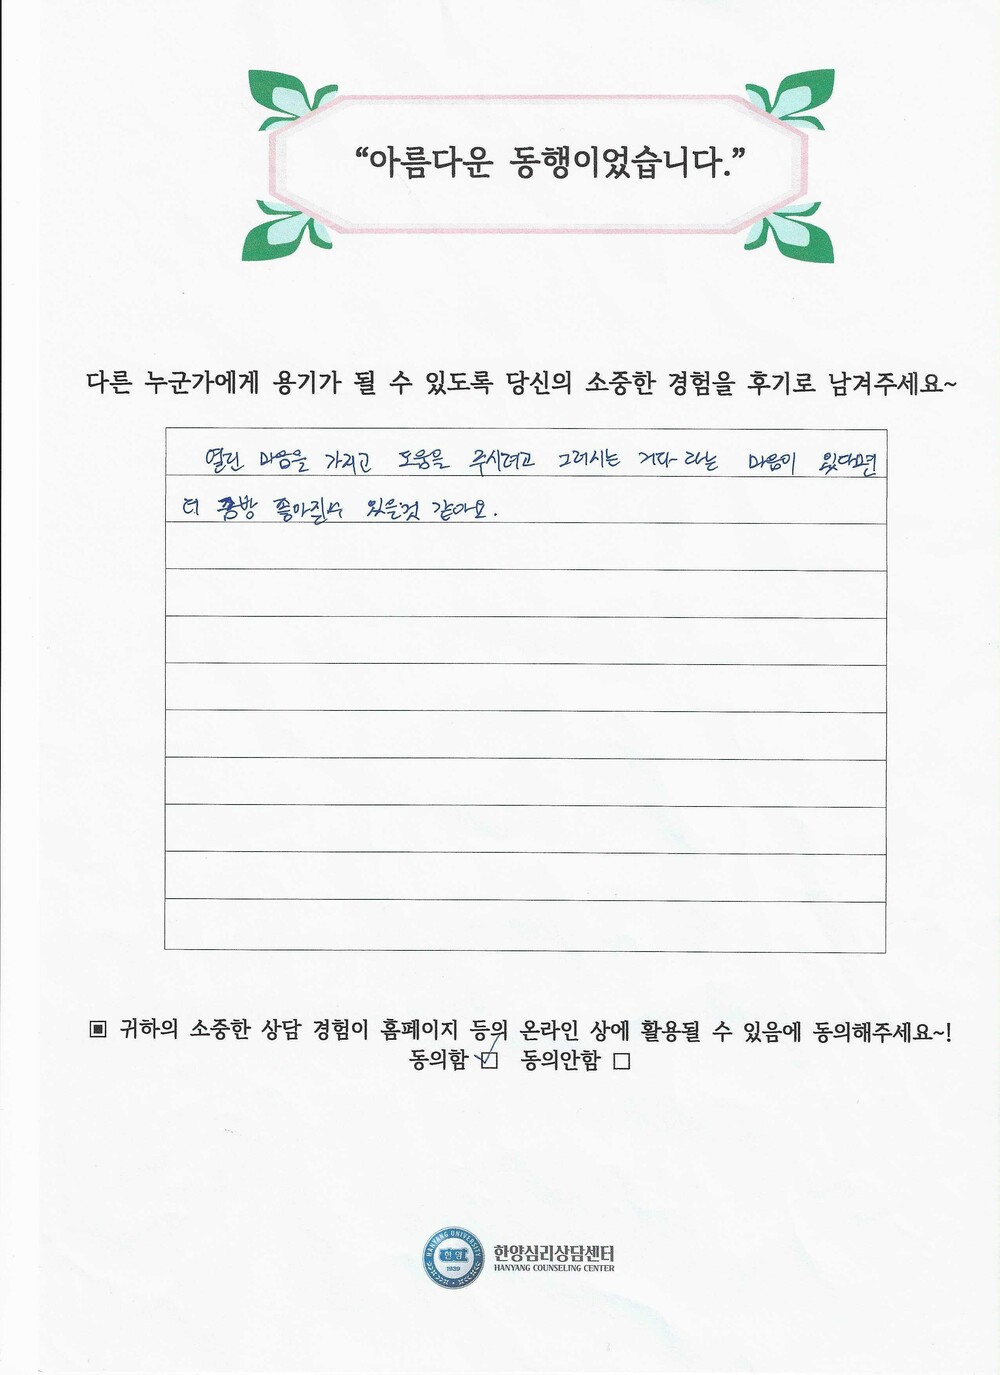 “아름다운 동행이었습니다.”
다른 누군가에게 용기가 될 수 있도록 당신의 소중한 경험을 후기로 남겨주세요~
열린 마음을 가지고 도움을 주시려고 그러시는 거다 라는 마음이 있다면
더 금방 좋아질수 있을것 같아요.
▣ 귀하의 소중한 상담 경험이 홈페이지 등의 온라인 상에 활용될 수 있음에 동의해주세요~!
동의함 ☑ 동의안함 □
HANYANG UNIVERSITY
한양
1939
한양심리상담센터
HANYANG COUNSELING CENTER